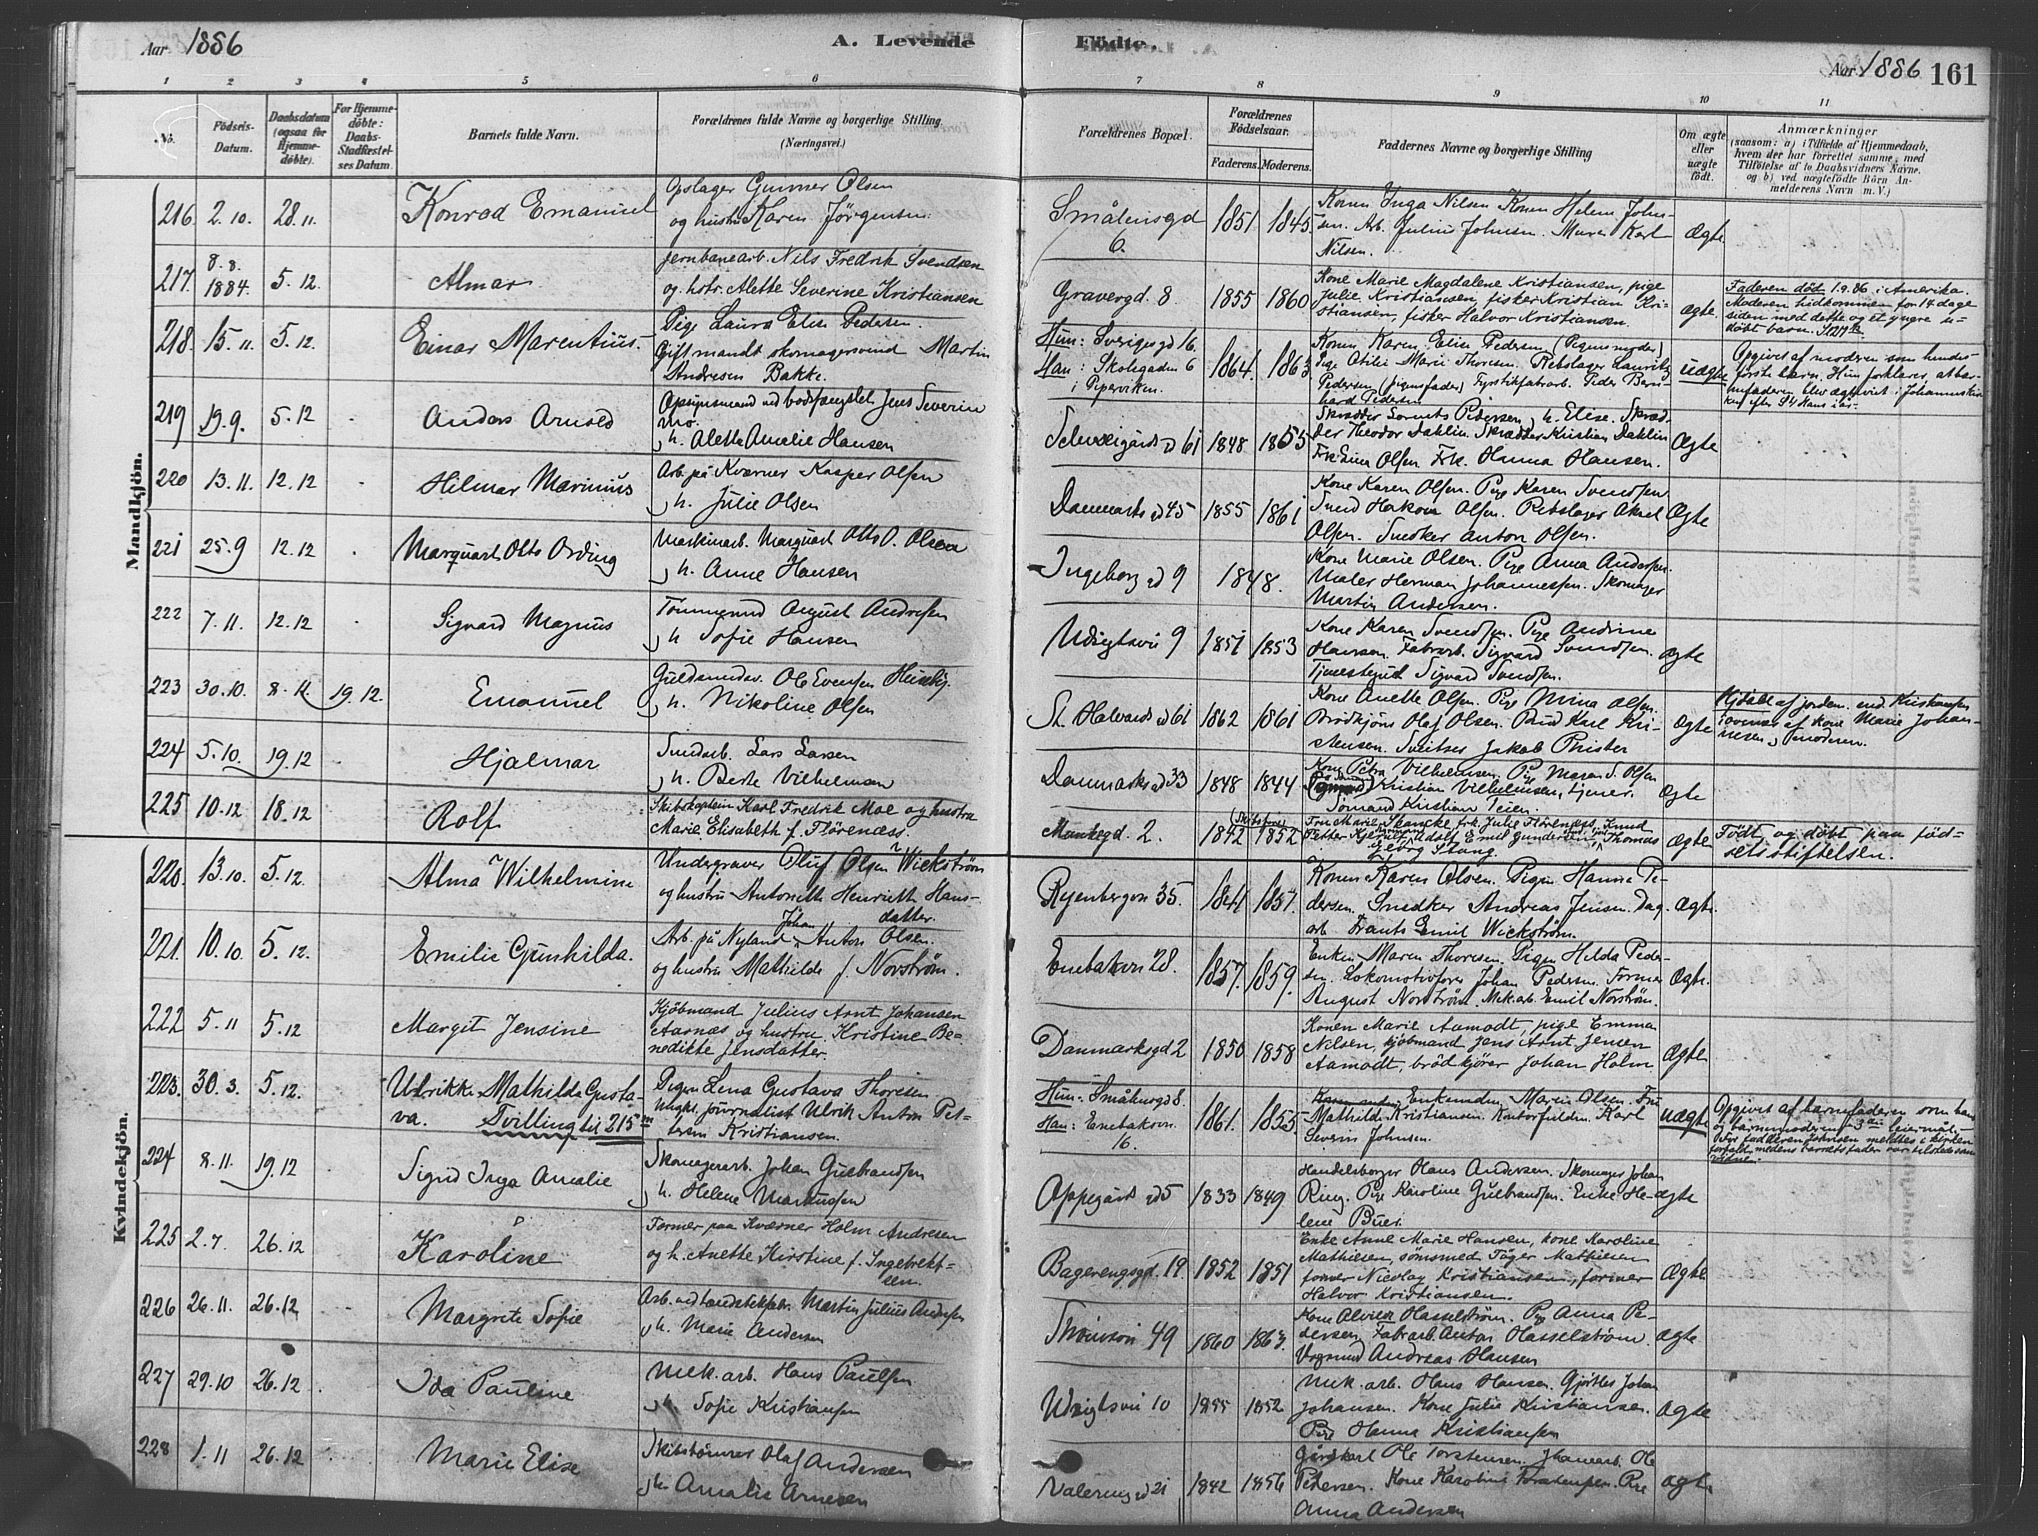 Aar 1886
A. Levende
Födte.
Aar 1886 161
1 2 3 4 5 6 7 8 9 10 11
No.
Födsels-
Datum.
Daabsdatum
(ogsaa for
Hjemme-
döbte).
For Hjemme-
döbte:
Daabs-
Stadfæstel-
ses Datum.
Barnets fulde Navn.
Forældrenes fulde Navne og borgerlige Stilling
(Næringsvei.)
Forældrenes Bopæl.
Forældrenes
Födselsaar.
Faderens. Moderens.
Faddernes Navne og borgerlige Stilling
Om ægte
eller
uægte
födt.
Anmærkninger
(saasom: a) i Tilfælde af Hjemmedaab,
hvem der har forrettet samme, med
Tilföielse af to Daabsvidners Navne,
og b) ved uægtefödte Börn An-
melderens Navn m. V.)
Mandkjön.
216 2.10. 28.11. Konrad Emanuel
Opslager Gunner Olsen
og hustru Karen Jörgensen.
Smålensgd
6.
1851 1845
Konen Inga Nilsen Konen Helene John-
sen. Arb. Julius Johnsen. Murer Karl
Nilsen.
Ægte
217. 8.8.
1884. 5.12. Almar
Jernbanearb. Nils Fredrik Svendsen
og hstr. Alette Severine Kristiansen
Gravergd. 8. 1855 1860
Kone Marie Magdalene Kristiansen, pige
Julie Kristiansen, fisker Kristian Kri-
stiansen, fisker Halvor Kristiansen.
ægte
Faderen död 1.9.86 i Amerika.
Moderen hidkommen for 14 dage
siden med dette og et yngre u-
döbt barn.
218. 15.11. 5.12. Einar Marentius.
Pige Laura Elise Pedersen.
Gift mandt skomagersvend Martin
Andresen Bakke.
Hun: Sverigesgd 16
Han: Skolegaden 6
i Pipervikens.
1864. 1863
Konen Karen Elise Pedersen (Pigens moder)
Pige Otilie Marie Thoresen. Rebslager Lauritz
Pedersen (pigens fader) Fyrstikfabarb. Peder Bern-
hard Pedersen
uægte
Opgivet af moderen som hendes
förste barn. Hun forklarer, at bar-
nefaderen blev ægteviet i Johanneskir-
ken efter St Hans i år.
219 19.9. 5.12 Anders Arnold
Opsynsmand ved bodsfængslet Jens Severin
Mo.
h. Alette Amalie Hansen
Schweigårdsgd 61 1848 1855
Skrædder Pedersen, h. Elise. Skræd-
der Theodor Dahlin. Skrædder Kristian Dahlin
Frk. Olsen Frk. Hanna Hansen.
Ægte
220 13.11. 12.12 Hilmar Marinius
Arb. på Kværner Kasper Olsen
h. Julie Olsen
Danmarksgd 45 1855 1861
Kone Karen Olsen. Pige Karen Svendsen
Smed Hakon Olsen. Rebslager Aksel
Olsen. Snedker Anton Olsen.
Ægte
221 25.9 12.12 Marquart Otto Ording
Maskinarb. Marquart Otto O. Olsen
h. Anne Hansen
Ingeborggd 9 1848.
Kone Marie Olsen. Pige Anna Andersen.
Maler Herman Johannessen. Skomager
Martin Andersen.
222 7.11. 12.12 Sigvard Magnus
Tömmermd August Andresen
h. Sofie Hansen
Udsigtsvei 9 1851 1853
Kone Karen Svendsen. Pige Andrine
Hansen. Fabrarb. Sigvard Svendsen.
Tjenestegut Sigvard Svendsen.
ægte
223 30.10. 8.12 19.12. Emanuel
Guldsmedsv. Ole Evensen Heisholj.
h. Nikoline Olsen
St. Halvardsgd 61 1862 1861
Kone Anette Olsen. Pige Mina Olsen.
Brödkjörer Olaf Olsen. Bud Karl Kri-
stensen. Jakob Pister
Ægte
Hjdöbt af jordem. Kristiansen
i overvær af kone Marie Johan-
nesen, moderen.
224 5.10. 19.12 Hjalmar
Smedarb. Lars Larsen
h. Berte Vilhelmsen
Danmarksgd 33 1848 1844
Kone Petra Vilhelmsen. Pige Maren S. Olsen
Kristian Vilhelmsen, tjener.
Sömand Kristian Teien
Ægte
225 10.12 18.12 Rolf
Skibskaptein Karl Fredrik Moe og hustru
Marie Elisabeth f. Flörenæss.
Munkegd. 2. 1842 1852
Fru Marie Skancke, frk. Julie Flörenæss, Knud
Petter Adolf Emil Gundersen Thomas
Georg Stang.
Ægte
Födt og döbt paa föd-
selsstiftelsen.
Kvindekjön.
220. 13.10. 5.12. Alma Wilhelmine
Undergraver Oluf Olsen Wickström
og hustru Antonette Henriette Hans-
datter.
Ryenbergvn 35. 1841 1857.
Konen Karen Olsen. Pigen Hanna Pe-
dersen. Snedker Andreas Jensen. Dag
arb. Frants Emil Wickström.
Ægte.
221. 10.10. 5.12. Emilie Gunhilda.
Arb. på Nyland Johan Anton Olsen.
og hustru Mathilde f. Norström.
Enebakvn 28. 1857. 1859.
Enken Maren Thoresen. Pigen Hilda Peder-
sen. Lokomotivförer Johan Pedersen. Former
August Norström. Mek. arb. Emil Norström.
Ægte.
222 5.11 5.12 Margit Jensine
Kjöbmand Julius Arnt Johansen
Aarnæs og hustru Kristine Be-
nedikte Jensdatter.
Danmarksgd 2 1850 1858
Konen Marie Aamodt, pige Emma
Nilsen, kjöbmand Jens Arnt Jensen
Aamodt, brödkjörer Johan Holm
Ægte
223. 30.3. 5.12. Ulrikke Mathilda Gusta-
va. Tvilling til 215 m
Pigen Lena Gustava Thoresen
Ungkl. journalist Ulrik Anton Pet-
tersen Kristiansen.
Hun: Småhusgd 8.
Han: Enebakvn.
16.
1861. 1855.
Enkemadm. Maren Olsen. Fru
Mathilde Kristiansen. Kontorfuldm. Karl
Severin Johnsen.
uægte
Opgivet af barnefaderen som hans
og barnemoderens 3die leiermål.
224 8.11. 19.12 Sigrid Inga Amalie
Skomagerarb. Johan Gulbrandsen
h. Helene Martinsen
Oppegårdsgd 5 1833 1849
Handelsborger Hans Andersen. Skomager Johan
Ring. Pige Karoline Gulbrandsen. Enke He-
lene Buer.
ægte
225 2.7. 26.12 Karoline
Former paa Kværner Holm Andresen
og h. Anette Kirstine f. Ingebrekt-
sen.
Bagerengsgd. 19. 1852 1851
Enke Anne Marie Hansen, kone Karoline
Mathiesen, sömsmed Töger Mathiesen
former Nicolay Kristiansen, former
Halvor Kristiansen.
Ægte
226 26.11. 26.12 Margrete Sofie
Arb. ved tændstikfabr. Martin Julius Andersen
h. Marie Andersen
49 1860 1863.
Kone Alvilde Hasselström. Pige Anna Pe-
dersen, Fabrarb. Anton Hasselström
Vognmd Andreas Hansen
Ægte
227 29.10 26.12 Ida Pauline
Mek. arb. Hans Paulsen
h. Sofie Kristiansen
Udsigtsvei 10 1855 1852
Mek. arb. Hans Hansen. Gjörtler Johan
Johansen. Kone Julie Kristiansen.
Pige Hanna Kristiansen
ægte
228 1.11 26.12 Marie Elise
Skibstömrer Olaf Andersen
h. Amalie Arnesen
Valerenggd 21 1842 1856
Gårdkarl Ole Torstensen. Ole
Pedersen. Kone Karoline Torstensen. Pige
Anna Andersen
ægte